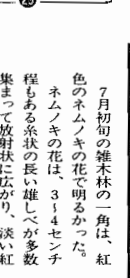 25
7月初旬の雑木林の一角は、紅
色のネムノキの花で明るかった。
ネムノキの花は、3〜4センチ
程もある糸状の長い雄しべが多数
集まって放射状に広がり、淡い紅